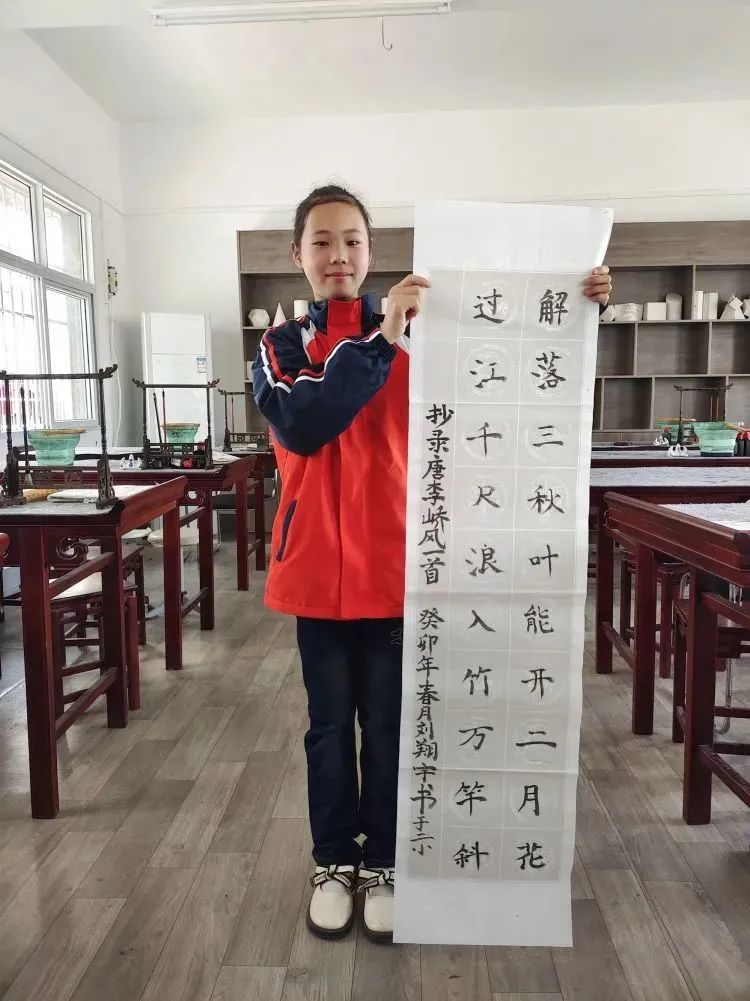 解落三秋叶能开二月花
过江千尺浪入竹万竿斜
抄录唐李峤风一首 癸卯年春月刘翔宇书于二小